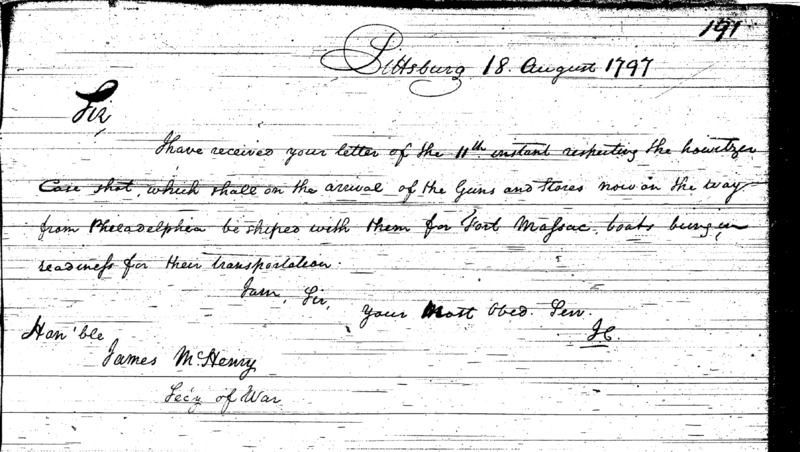 191
Pittsburg 18. August 1797
Sir,
I have received your letter of the 11th. instant respecting the howitzer
Case shot, which shall on the arrival of the Guns and Stores now on the way
from Pheladelphea be shiped with them for Fort Massac, boats being in
readiness for their transportation.
I am, Sir,
your Most Obed. Serv.
Hon'ble
James McHenry
Sec'y of War